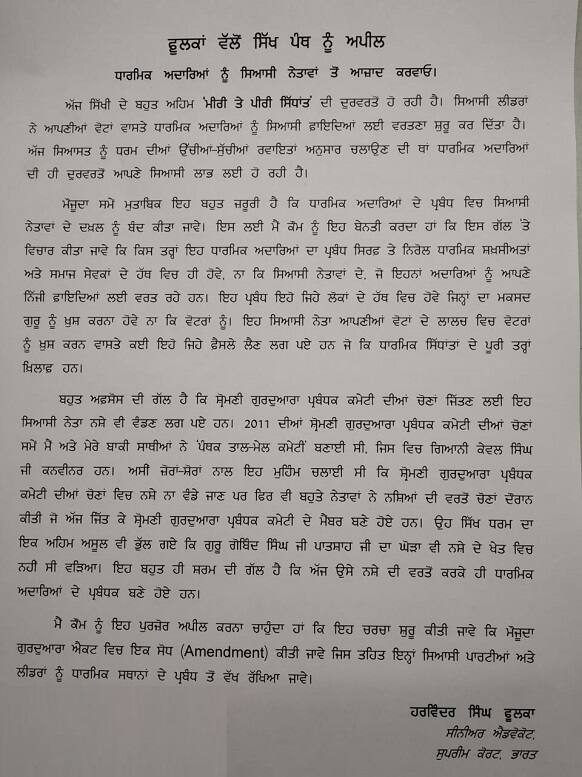 ਫੂਲਕਾਂ ਵੱਲੋਂ ਸਿੱਖ ਪੰਥ ਨੂੰ ਅਪੀਲ
ਧਾਰਮਿਕ ਅਦਾਰਿਆਂ ਨੂੰ ਸਿਆਸੀ ਨੇਤਾਵਾਂ ਤੋਂ ਆਜ਼ਾਦ ਕਰਵਾਓ।
ਅੱਜ ਸਿੱਖੀ ਦੇ ਬਹੁਤ ਅਹਿਮ 'ਮੀਰੀ ਤੇ ਪੀਰੀ ਸਿਧਾਂਤ' ਦੀ ਦੁਰਵਰਤੋਂ ਹੋ ਰਹੀ ਹੈ। ਸਿਆਸੀ ਲੀਡਰਾਂ
ਨੇ ਆਪਣੀਆਂ ਵੋਟਾਂ ਵਾਸਤੇ ਧਾਰਮਿਕ ਅਦਾਰਿਆਂ ਨੂੰ ਸਿਆਸੀ ਫ਼ਾਇਦਿਆਂ ਲਈ ਵਰਤਣਾ ਸ਼ੁਰੂ ਕਰ ਦਿੱਤਾ ਹੈ।
ਅੱਜ ਸਿਆਸਤ ਨੂੰ ਧਰਮ ਦੀਆਂ ਉੱਚੀਆਂ-ਸੁੱਚੀਆਂ ਰਵਾਇਤਾਂ ਅਨੁਸਾਰ ਚਲਾਉਣ ਦੀ ਥਾਂ ਧਾਰਮਿਕ ਅਦਾਰਿਆਂ
ਦੀ ਹੀ ਦੁਰਵਰਤੋਂ ਆਪਣੇ ਸਿਆਸੀ ਲਾਭ ਲਈ ਹੋ ਰਹੀ ਹੈ।
ਮੌਜੂਦਾ ਸਮੇਂ ਮੁਤਾਬਿਕ ਇਹ ਬਹੁਤ ਜ਼ਰੂਰੀ ਹੈ ਕਿ ਧਾਰਮਿਕ ਅਦਾਰਿਆਂ ਦੇ ਪ੍ਰਬੰਧ ਵਿਚ ਸਿਆਸੀ
ਨੇਤਾਵਾਂ ਦੇ ਦਖ਼ਲ ਨੂੰ ਬੰਦ ਕੀਤਾ ਜਾਵੇ। ਇਸ ਲਈ ਮੈਂ ਕੌਮ ਨੂੰ ਇਹ ਬੇਨਤੀ ਕਰਦਾ ਹਾਂ ਕਿ ਇਸ ਗੱਲ 'ਤੇ
ਵਿਚਾਰ ਕੀਤਾ ਜਾਵੇ ਕਿ ਕਿਸ ਤਰ੍ਹਾਂ ਇਹ ਧਾਰਮਿਕ ਅਦਾਰਿਆਂ ਦਾ ਪ੍ਰਬੰਧ ਸਿਰਫ਼ ਤੇ ਨਿਰੋਲ ਧਾਰਮਿਕ ਸ਼ਖ਼ਸੀਅਤਾਂ
ਅਤੇ ਸਮਾਜ ਸੇਵਕਾਂ ਦੇ ਹੱਥ ਵਿਚ ਹੀ ਹੋਵੇ, ਨਾ ਕਿ ਸਿਆਸੀ ਨੇਤਾਵਾਂ ਦੇ, ਜੋ ਇਹਨਾਂ ਅਦਾਰਿਆਂ ਨੂੰ ਆਪਣੇ
ਨਿੱਜੀ ਫ਼ਾਇਦਿਆਂ ਲਈ ਵਰਤ ਰਹੇ ਹਨ। ਇਹ ਪ੍ਰਬੰਧ ਇਹੋ ਜਿਹੇ ਲੋਕਾਂ ਦੇ ਹੱਥ ਵਿਚ ਹੋਵੇ ਜਿਨ੍ਹਾਂ ਦਾ ਮਕਸਦ
ਗੁਰੂ ਨੂੰ ਖ਼ੁਸ਼ ਕਰਨਾ ਹੋਵੇ ਨਾ ਕਿ ਵੋਟਰਾਂ ਨੂੰ। ਇਹ ਸਿਆਸੀ ਨੇਤਾ ਆਪਣੀਆਂ ਵੋਟਾਂ ਦੇ ਲਾਲਚ ਵਿਚ ਵੋਟਰਾਂ
ਨੂੰ ਖ਼ੁਸ਼ ਕਰਨ ਵਾਸਤੇ ਕਈ ਇਹੋ ਜਿਹੇ ਫ਼ੈਸਲੇ ਲੈਣ ਲਗ ਪਏ ਹਨ ਜੋ ਕਿ ਧਾਰਮਿਕ ਸਿੱਧਾਂਤਾਂ ਦੇ ਪੂਰੀ ਤਰ੍ਹਾਂ
ਖਿਲਾਫ਼ ਹਨ।
ਬਹੁਤ ਅਫ਼ਸੋਸ ਦੀ ਗੱਲ ਹੈ ਕਿ ਸ਼੍ਰੋਮਣੀ ਗੁਰਦੁਆਰਾ ਪ੍ਰਬੰਧਕ ਕਮੇਟੀ ਦੀਆਂ ਚੋਣਾਂ ਜਿੱਤਣ ਲਈ ਇਹ
ਸਿਆਸੀ ਨੇਤਾ ਨਸ਼ੇ ਵੀ ਵੰਡਣ ਲਗ ਪਏ ਹਨ। 2011 ਦੀਆਂ ਸ਼੍ਰੋਮਣੀ ਗੁਰਦੁਆਰਾ ਪ੍ਰਬੰਧਕ ਕਮੇਟੀ ਦੀਆਂ ਚੋਣਾਂ
ਸਮੇਂ ਮੈਂ ਅਤੇ ਮੇਰੇ ਬਾਕੀ ਸਾਥੀਆਂ ਨੇ 'ਪੰਥਕ ਤਾਲ-ਮੇਲ ਕਮੇਟੀ' ਬਣਾਈ ਸੀ, ਜਿਸ ਵਿਚ ਗਿਆਨੀ ਕੇਵਲ ਸਿੰਘ
ਜੀ ਕਨਵੀਨਰ ਹਨ। ਅਸੀਂ ਜ਼ੋਰਾਂ-ਸ਼ੋਰਾਂ ਨਾਲ ਇਹ ਮੁਹਿੰਮ ਚਲਾਈ ਸੀ ਕਿ ਸ਼੍ਰੋਮਣੀ ਗੁਰਦੁਆਰਾ ਪ੍ਰਬੰਧਕ
ਕਮੇਟੀ ਦੀਆਂ ਚੋਣਾਂ ਵਿਚ ਨਸ਼ੇ ਨਾ ਵੰਡੇ ਜਾਣ ਪਰ ਫਿਰ ਵੀ ਬਹੁਤੇ ਨੇਤਾਵਾਂ ਨੇ ਨਸ਼ਿਆਂ ਦੀ ਵਰਤੋਂ ਚੋਣਾਂ ਦੌਰਾਨ
ਕੀਤੀ ਜੋ ਅੱਜ ਜਿੱਤ ਕੇ ਸ਼੍ਰੋਮਣੀ ਗੁਰਦੁਆਰਾ ਪ੍ਰਬੰਧਕ ਕਮੇਟੀ ਦੇ ਮੈਂਬਰ ਬਣੇ ਹੋਏ ਹਨ। ਉਹ ਸਿੱਖ ਧਰਮ ਦਾ
ਇਕ ਅਹਿਮ ਅਸੂਲ ਵੀ ਭੁੱਲ ਗਏ ਕਿ ਗੁਰੂ ਗੋਬਿੰਦ ਸਿੰਘ ਜੀ ਪਾਤਸ਼ਾਹ ਜੀ ਦਾ ਘੋੜਾ ਵੀ ਨਸ਼ੇ ਦੇ ਖੇਤ ਵਿਚ
ਨਹੀਂ ਸੀ ਵੜਿਆ। ਇਹ ਬਹੁਤ ਹੀ ਸ਼ਰਮ ਦੀ ਗੱਲ ਹੈ ਕਿ ਅੱਜ ਉਸੇ ਨਸ਼ੇ ਦੀ ਵਰਤੋਂ ਕਰਕੇ ਹੀ ਧਾਰਮਿਕ
ਅਦਾਰਿਆਂ ਦੇ ਪ੍ਰਬੰਧਕ ਬਣੇ ਹੋਏ ਹਨ।
ਮੈਂ ਕੌਮ ਨੂੰ ਇਹ ਪੁਰਜ਼ੋਰ ਅਪੀਲ ਕਰਨਾ ਚਾਹੁੰਦਾ ਹਾਂ ਕਿ ਇਹ ਚਰਚਾ ਸ਼ੁਰੂ ਕੀਤੀ ਜਾਵੇ ਕਿ ਮੌਜੂਦਾ
ਗੁਰਦੁਆਰਾ ਐਕਟ ਵਿਚ ਇਕ ਸੋਧ (Amendment) ਕੀਤੀ ਜਾਵੇ ਜਿਸ ਤਹਿਤ ਇਨ੍ਹਾਂ ਸਿਆਸੀ ਪਾਰਟੀਆਂ ਅਤੇ
ਲੀਡਰਾਂ ਨੂੰ ਧਾਰਮਿਕ ਸਥਾਨਾਂ ਦੇ ਪ੍ਰਬੰਧ ਤੋਂ ਵੱਖ ਰੱਖਿਆ ਜਾਵੇ।
ਹਰਵਿੰਦਰ ਸਿੰਘ ਫੂਲਕਾ
ਸੀਨੀਅਰ ਐਡਵੋਕੇਟ,
ਸੁਪਰੀਮ ਕੋਰਟ, ਭਾਰਤ